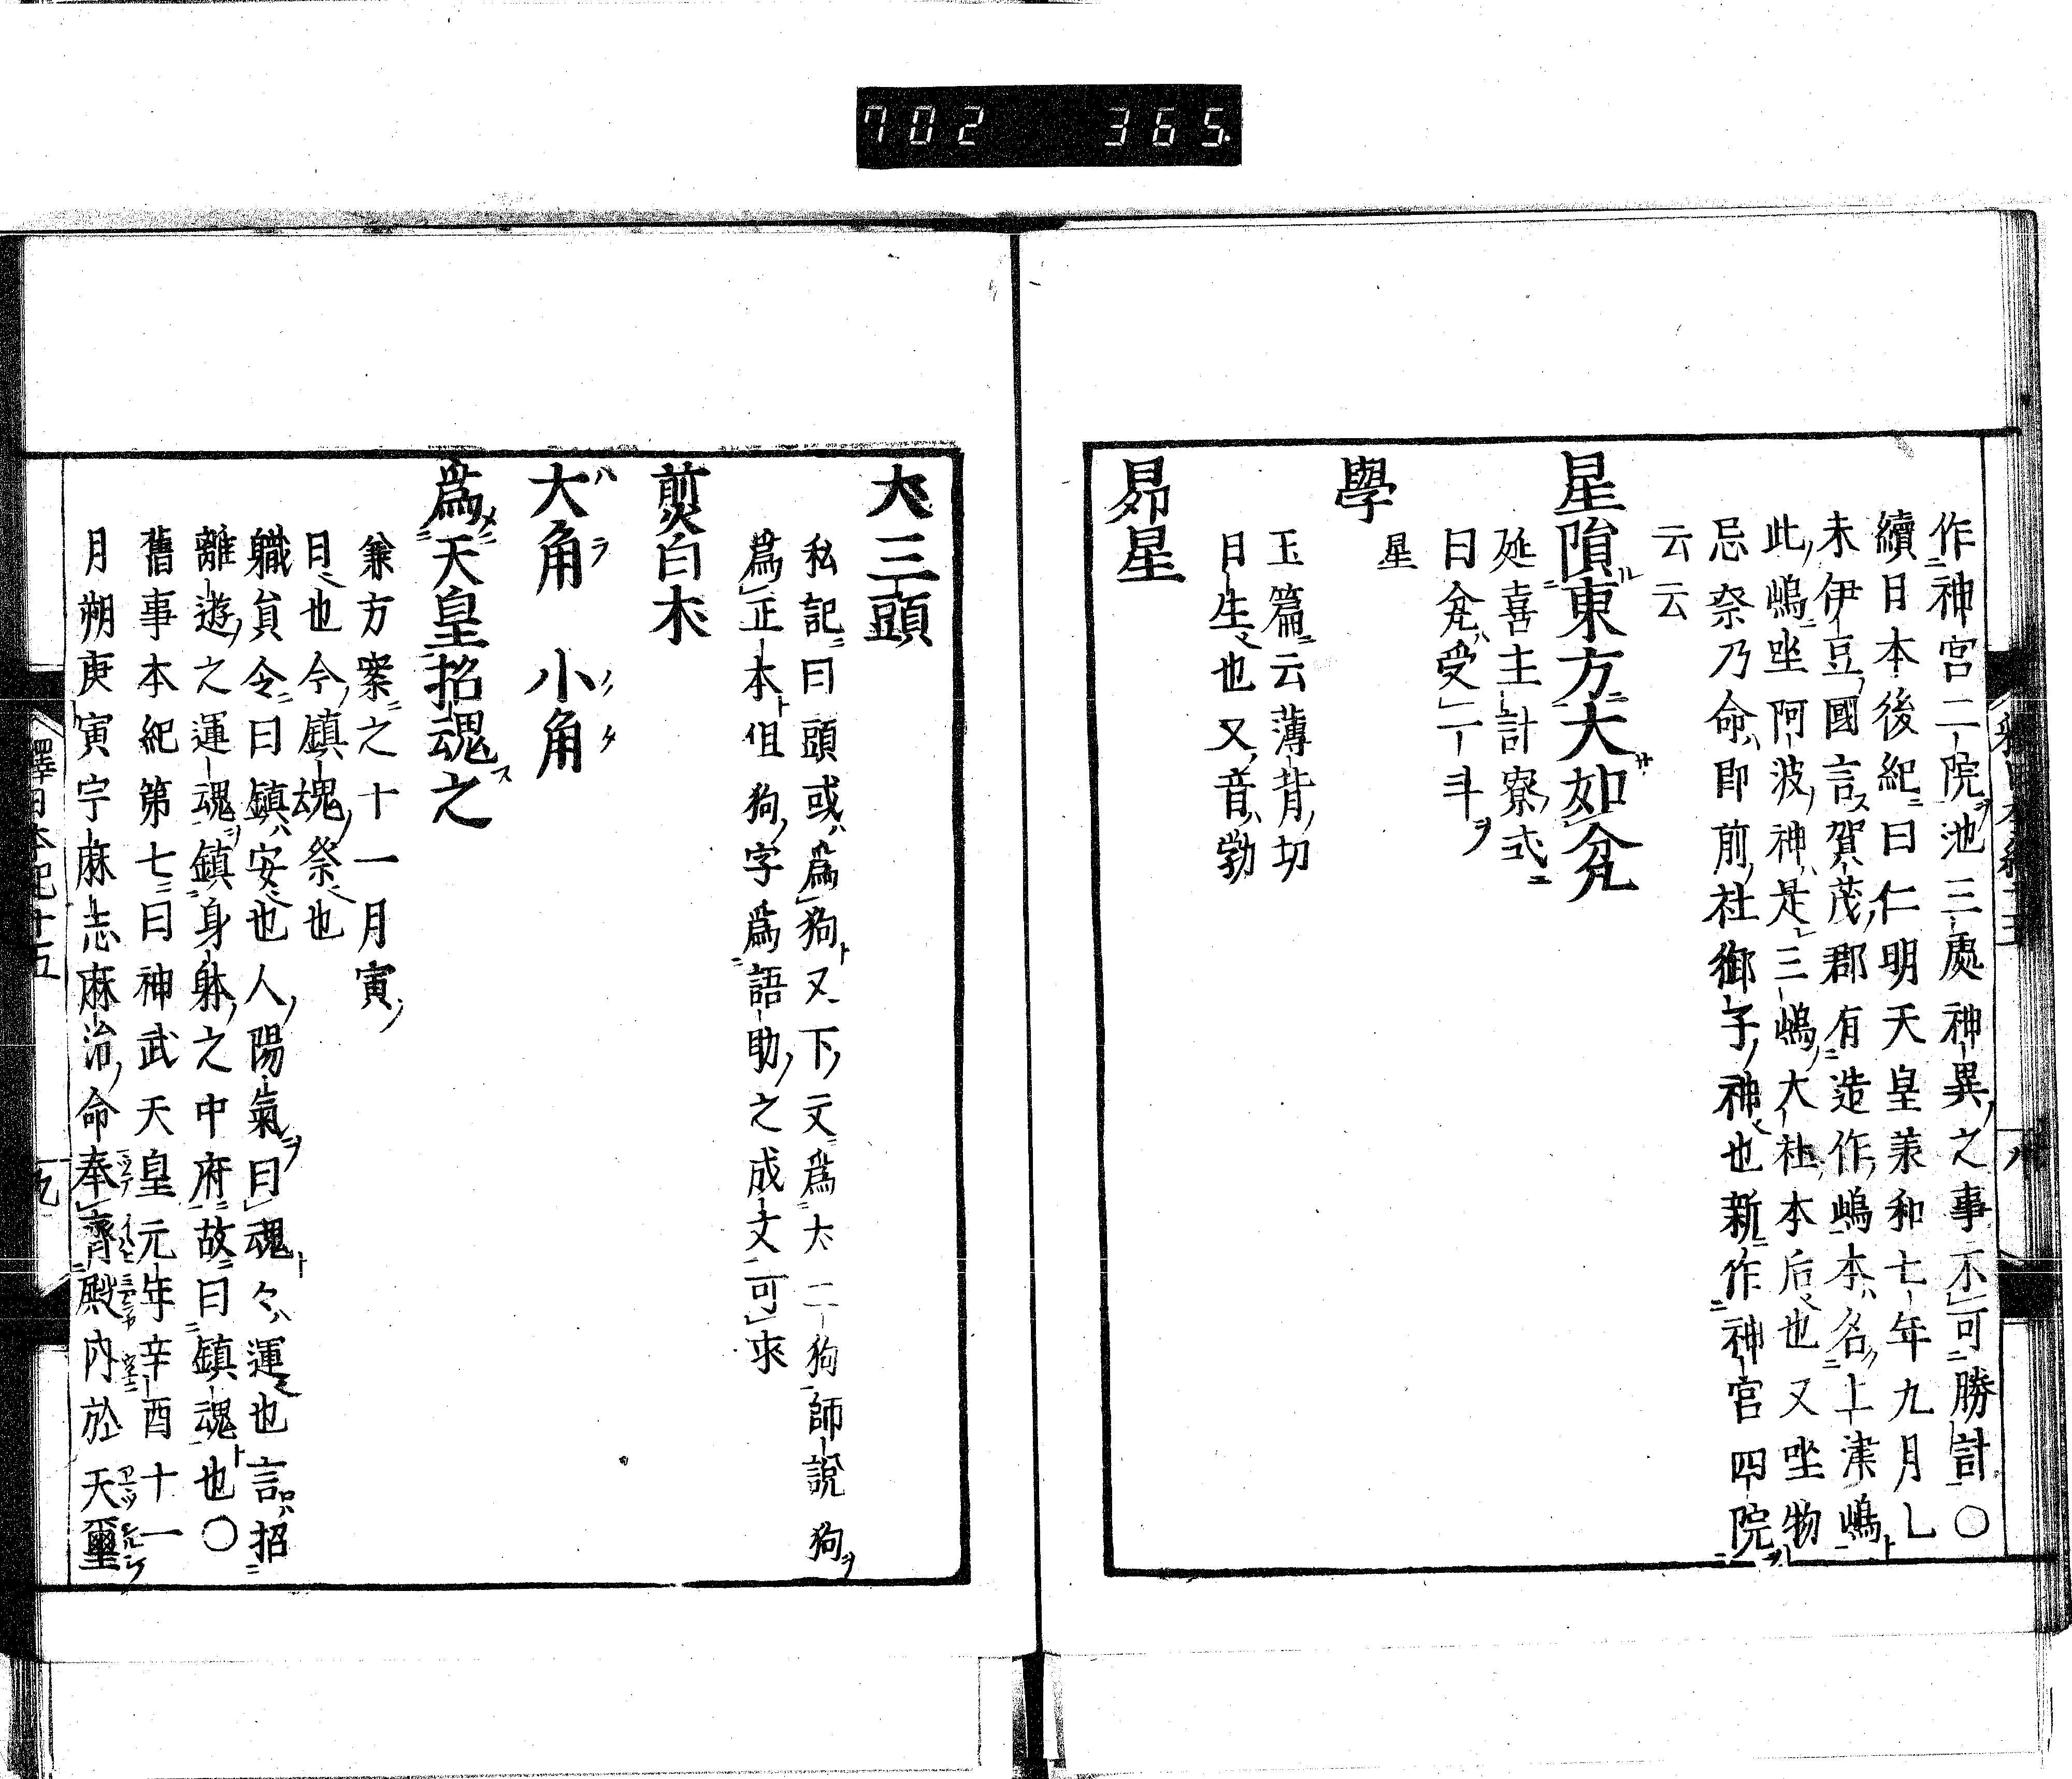 702 365
作神宮二院池三處神異之事不可勝計〇
續日本後紀曰仁明天皇兼和七年九月乚
未伊豆國言賀茂郡有造作嶋本名上津嶋
此嶋坐阿波神是三嶋大社本后也又坐物
忌奈乃命即前社御子神也新作神宮四院
云云
星隕東方大如瓫
延喜主計寮式
曰瓫受一斗
學
星
玉篇云薄背切
日生也又音勃
昴星
大三頭
私記曰頭或爲狗又下文爲大二狗師說狗
爲正本但狗字爲語助之成文可求
煎白朮
大角 小角
ハラ ノクタ
爲天皇招魂之
兼方案之十一月寅
日也今鎮魂祭也
職員令曰鎮安也人陽氣曰魂々運也言招
離遊之運魂鎮身躰之中府故曰鎮魂也〇
舊事本紀第七曰神武天皇元年辛酉十一
月朔庚寅宇麻志麻治命奉齊殿內於天璽
釋日本紀十五 九